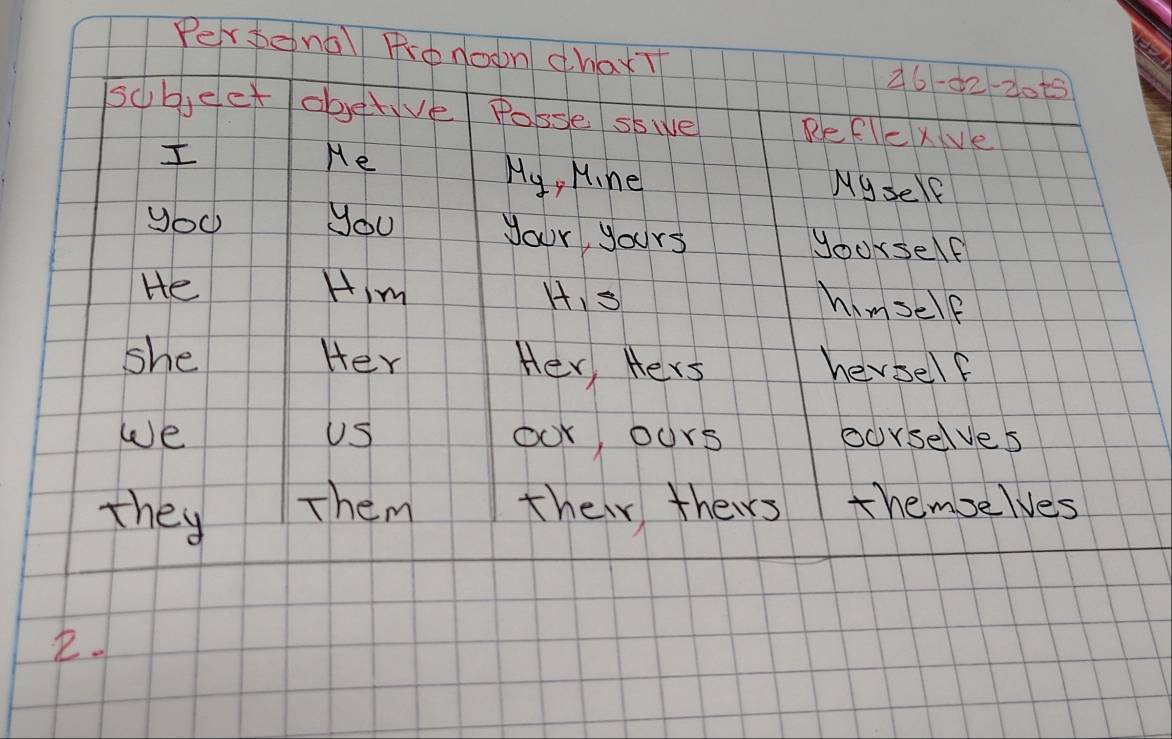 Personal Pronoun charT
26-02-2025
subject objetive Possessive Reflexive
I Me My, Mine Myself
you you your, yours yourself
He Him His himself
she Her Her, Hers herself
we us our, ours ourselves
they Them their, theirs themselves
2.